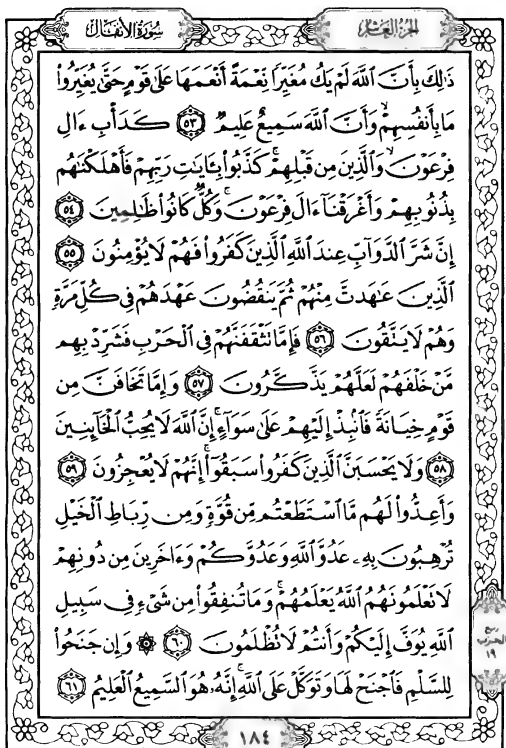 سُورَةُ الأَنفَالِ
الجُزءُ العَاشِرُ
ذَٰلِكَ بِأَنَّ ٱللَّهَ لَمْ يَكُ مُغَيِّرًا نِّعْمَةً أَنْعَمَهَا عَلَىٰ قَوْمٍ حَتَّىٰ يُغَيِّرُوا۟
مَا بِأَنفُسِهِمْ ۙ وَأَنَّ ٱللَّهَ سَمِيعٌ عَلِيمٌ ٥٣ كَدَأْبِ ءَالِ
فِرْعَوْنَ ۙ وَٱلَّذِينَ مِن قَبْلِهِمْ ۚ كَذَّبُوا۟ بِـَٔايَـٰتِ رَبِّهِمْ فَأَهْلَكْنَـٰهُم
بِذُنُوبِهِمْ وَأَغْرَقْنَآ ءَالَ فِرْعَوْنَ ۚ وَكُلٌّ كَانُوا۟ ظَـٰلِمِينَ ٥٤
إِنَّ شَرَّ ٱلدَّوَآبِّ عِندَ ٱللَّهِ ٱلَّذِينَ كَفَرُوا۟ فَهُمْ لَا يُؤْمِنُونَ ٥٥
ٱلَّذِينَ عَـٰهَدتَّ مِنْهُمْ ثُمَّ يَنقُضُونَ عَهْدَهُمْ فِى كُلِّ مَرَّةٍ
وَهُمْ لَا يَتَّقُونَ ٥٦ فَإِمَّا تَثْقَفَنَّهُمْ فِى ٱلْحَرْبِ فَشَرِّدْ بِهِم
مَّنْ خَلْفَهُمْ لَعَلَّهُمْ يَذَّكَّرُونَ ٥٧ وَإِمَّا تَخَافَنَّ مِن
قَوْمٍ خِيَانَةً فَٱنۢبِذْ إِلَيْهِمْ عَلَىٰ سَوَآءٍ ۚ إِنَّ ٱللَّهَ لَا يُحِبُّ ٱلْخَآئِنِينَ
٥٨ وَلَا يَحْسَبَنَّ ٱلَّذِينَ كَفَرُوا۟ سَبَقُوٓا۟ ۚ إِنَّهُمْ لَا يُعْجِزُونَ ٥٩
وَأَعِدُّوا۟ لَهُم مَّا ٱسْتَطَعْتُم مِّن قُوَّةٍ وَمِن رِّبَاطِ ٱلْخَيْلِ
تُرْهِبُونَ بِهِۦ عَدُوَّ ٱللَّهِ وَعَدُوَّكُمْ وَءَاخَرِينَ مِن دُونِهِمْ
لَا تَعْلَمُونَهُمُ ٱللَّهُ يَعْلَمُهُمْ ۚ وَمَا تُنفِقُوا۟ مِن شَىْءٍ فِى سَبِيلِ
ٱللَّهِ يُوَفَّ إِلَيْكُمْ وَأَنتُمْ لَا تُظْلَمُونَ ٦٠ ۞ وَإِن جَنَحُوا۟
لِلسَّلْمِ فَٱجْنَحْ لَهَا وَتَوَكَّلْ عَلَى ٱللَّهِ ۚ إِنَّهُۥ هُوَ ٱلسَّمِيعُ ٱلْعَلِيمُ ٦١
ربع
الحزب
١٩
١٨٤